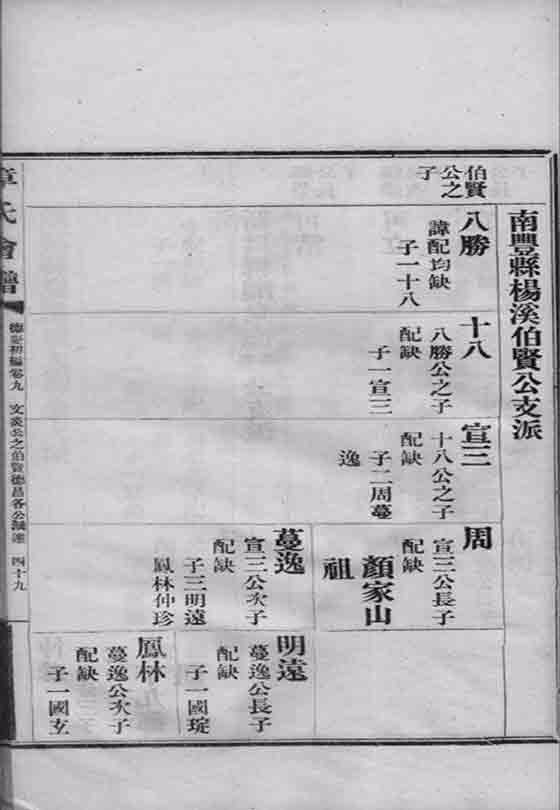 南豐縣楊溪伯賢公支派
伯賢
公之
子
八勝
諱配均缺
子一十八
十八
八勝公之子
配缺
子一宣三
宣三
十八公之子
配缺
子二周蔓
逸
周
宣三公長子
配缺
顏家山
祖
蔓逸
宣三公次子
配缺
子三明遠
鳳林仲珍
明遠
蔓逸公長子
配缺
子一國琔
鳳林
蔓逸公次子
配缺
子一國玄
章氏會譜
德慶初編卷九
文炎公之伯賢德昌各公派
四十九